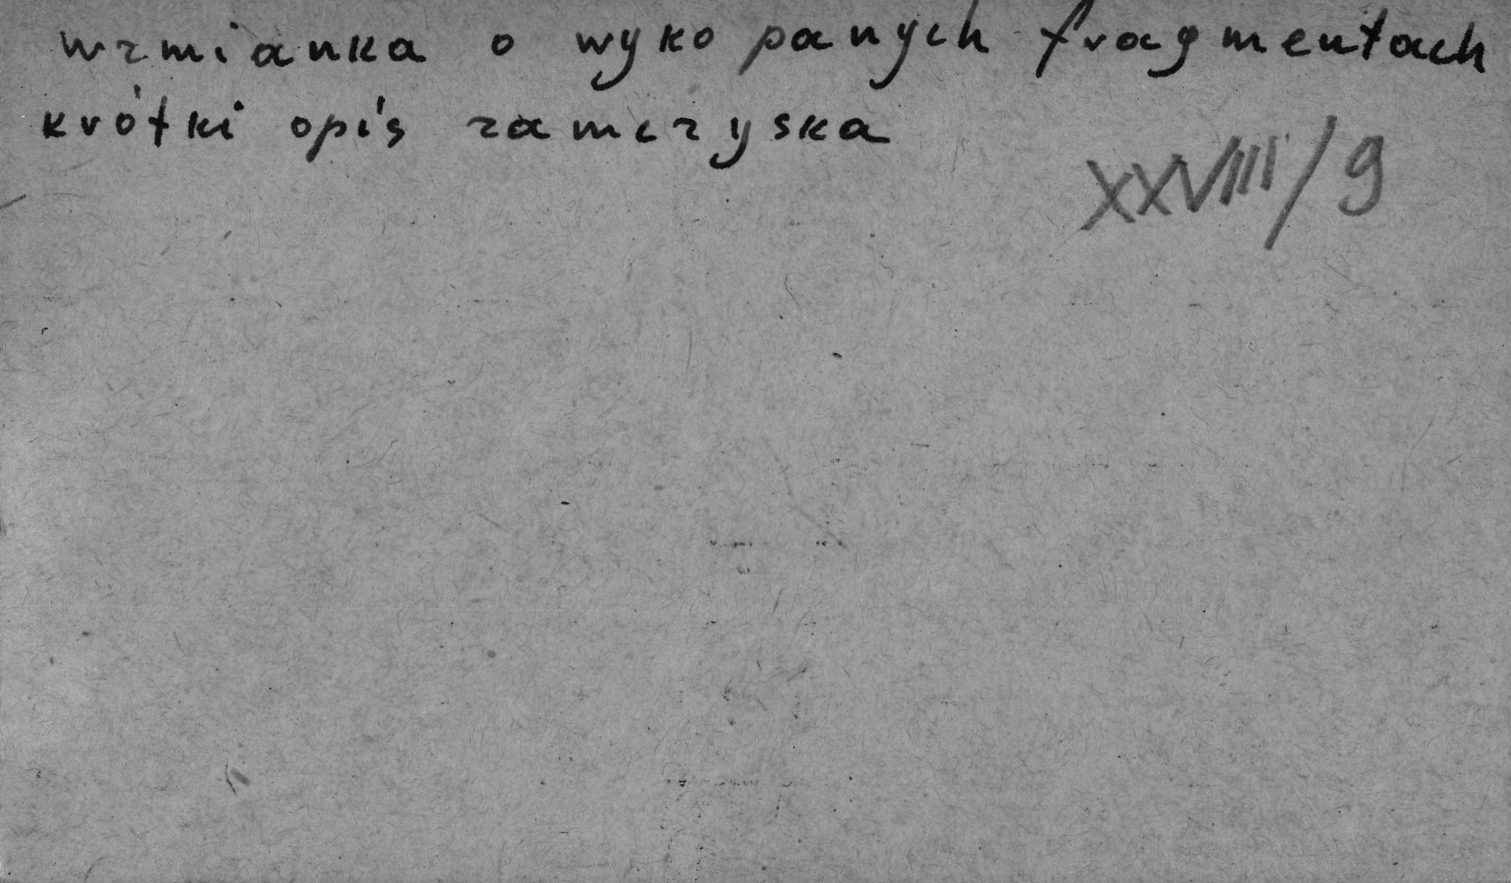 wzmianka o wykopanych fragmentach
krótki opis zamczyska
XXVIII/9